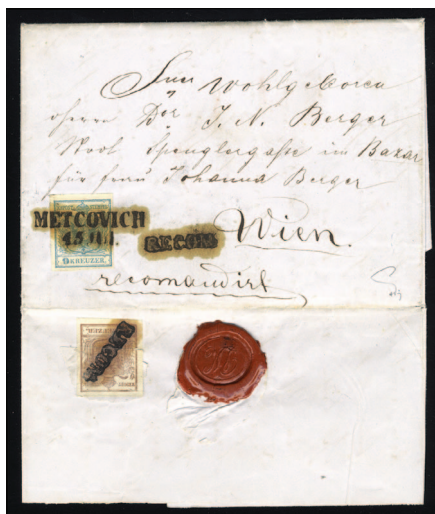 Seiner Wohlgeboren
Herrn Dor J. N. Berger
Spenglergasse im Bazar
für Frau Johanna Berger
METCOVICH
15
RECOM.
Wien.
9 KREUZER.
recomandirt
RECOM.